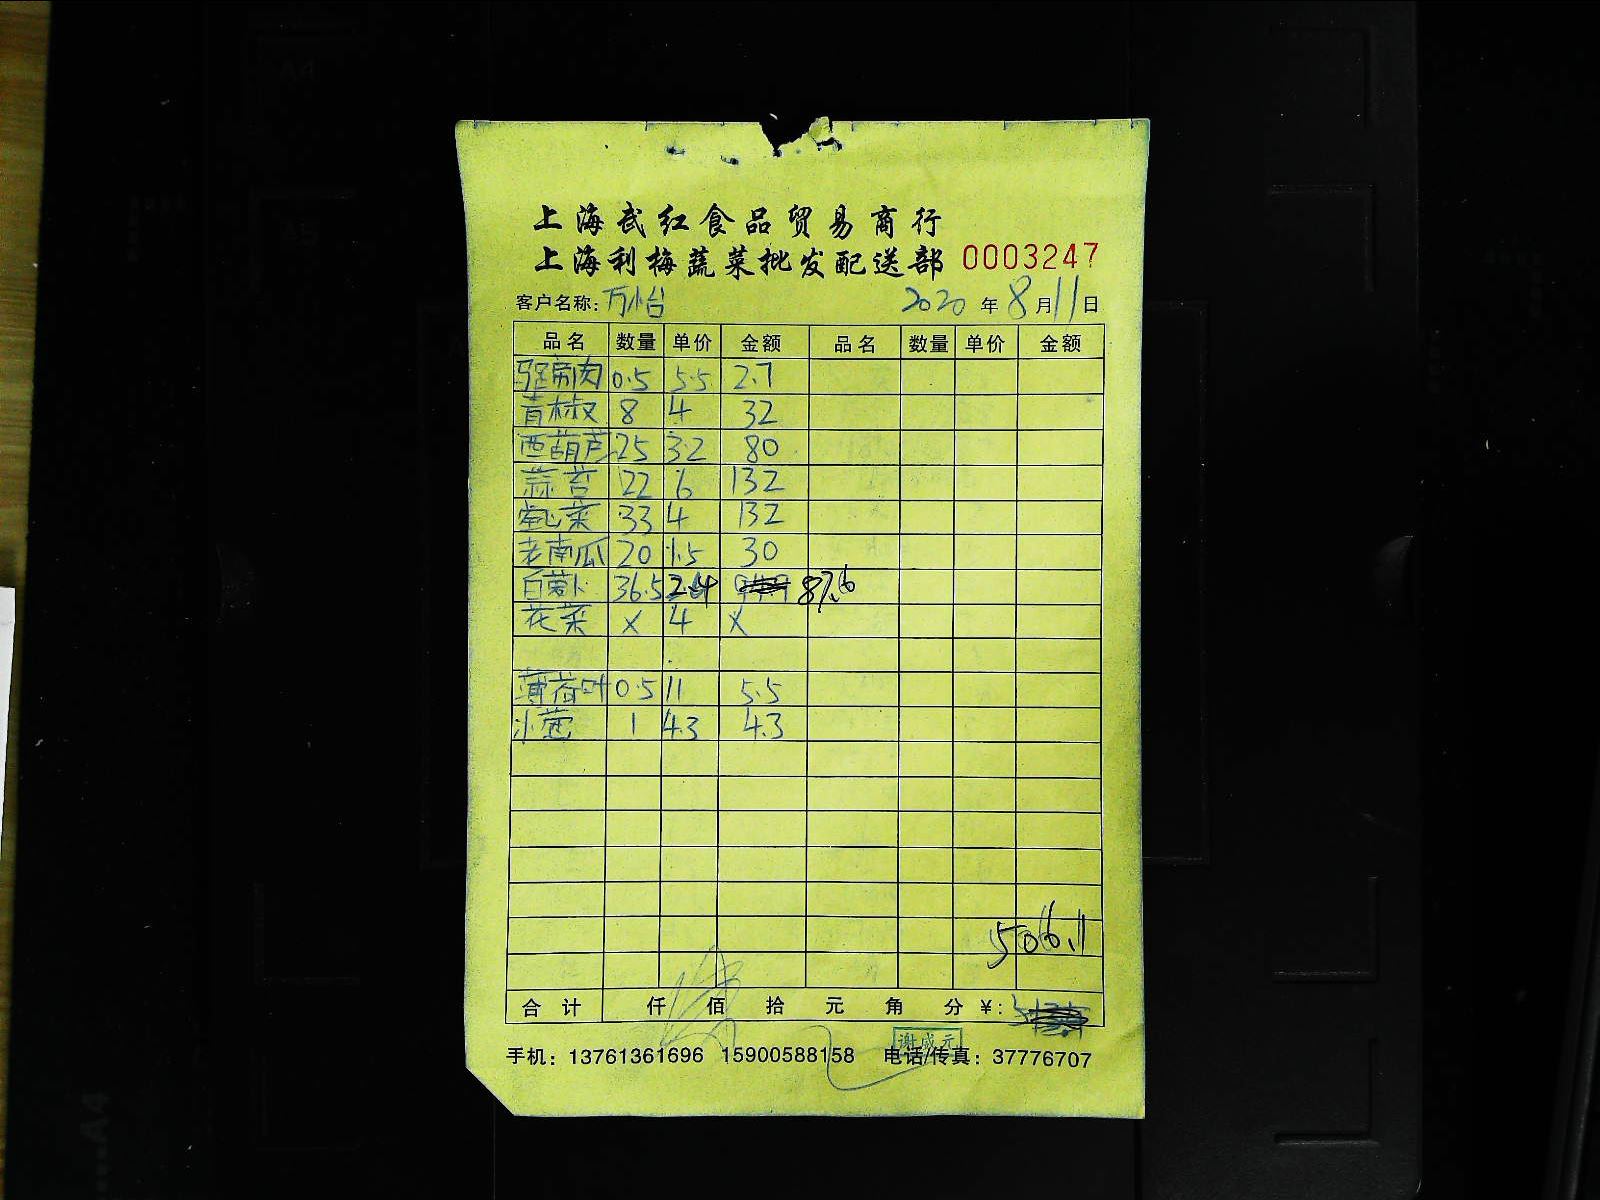 上海武红食品贸易商行
上海利梅蔬菜批发配送部 0003247
客户名称: 万怡 2020 年 8 月 11 日
品名 数量 单价 金额 品名 数量 单价 金额
肉 0.5 5.5 2.7
青椒 8 4 32
西葫芦 25 3.2 80
蒜苔 22 6 132
菜 33 4 132
老南瓜 20 1.5 30
白萝卜 36.5 2.4 87.6
花菜 × 4 ×
薄荷叶 0.5 11 5.5
小葱 1 4.3 4.3
506.1
合计 仟 佰 拾 元 角 分 ¥:
谢咸元
手机: 13761361696 15900588158 电话/传真: 37776707